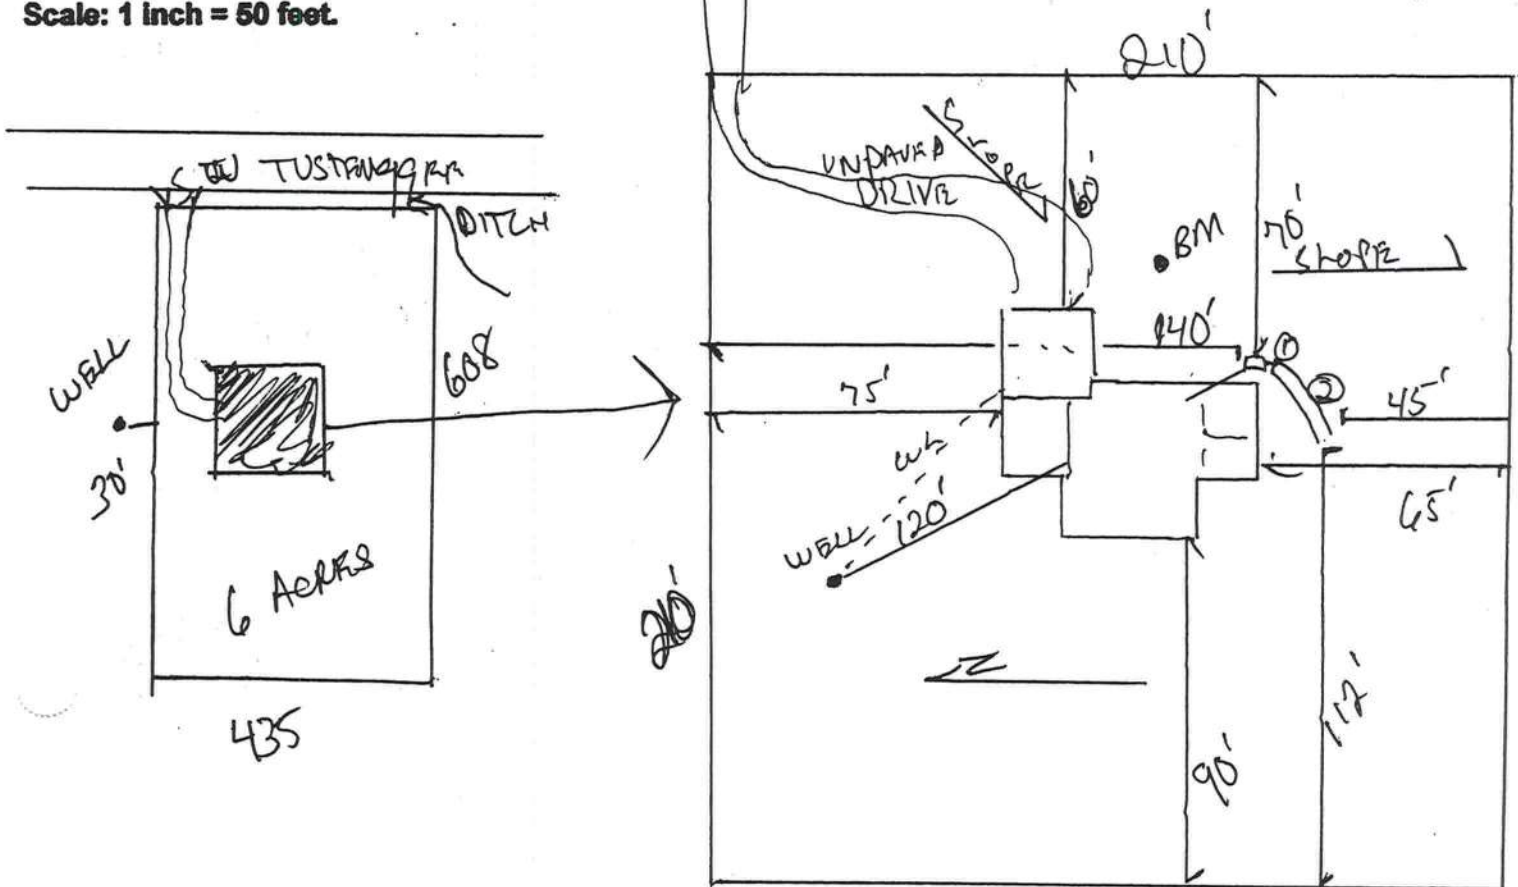 Scale: 1 inch = 50 feet.
SW TUSTENUGGEE
DITCH
WELL
30'
608
6 ACRES
435
210'
UNPAVED
DRIVE
SLOPE
60'
BM
70'
SLOPE
140'
①
②
75'
45'
WL
120'
WELL
65'
210'
N
90'
112'